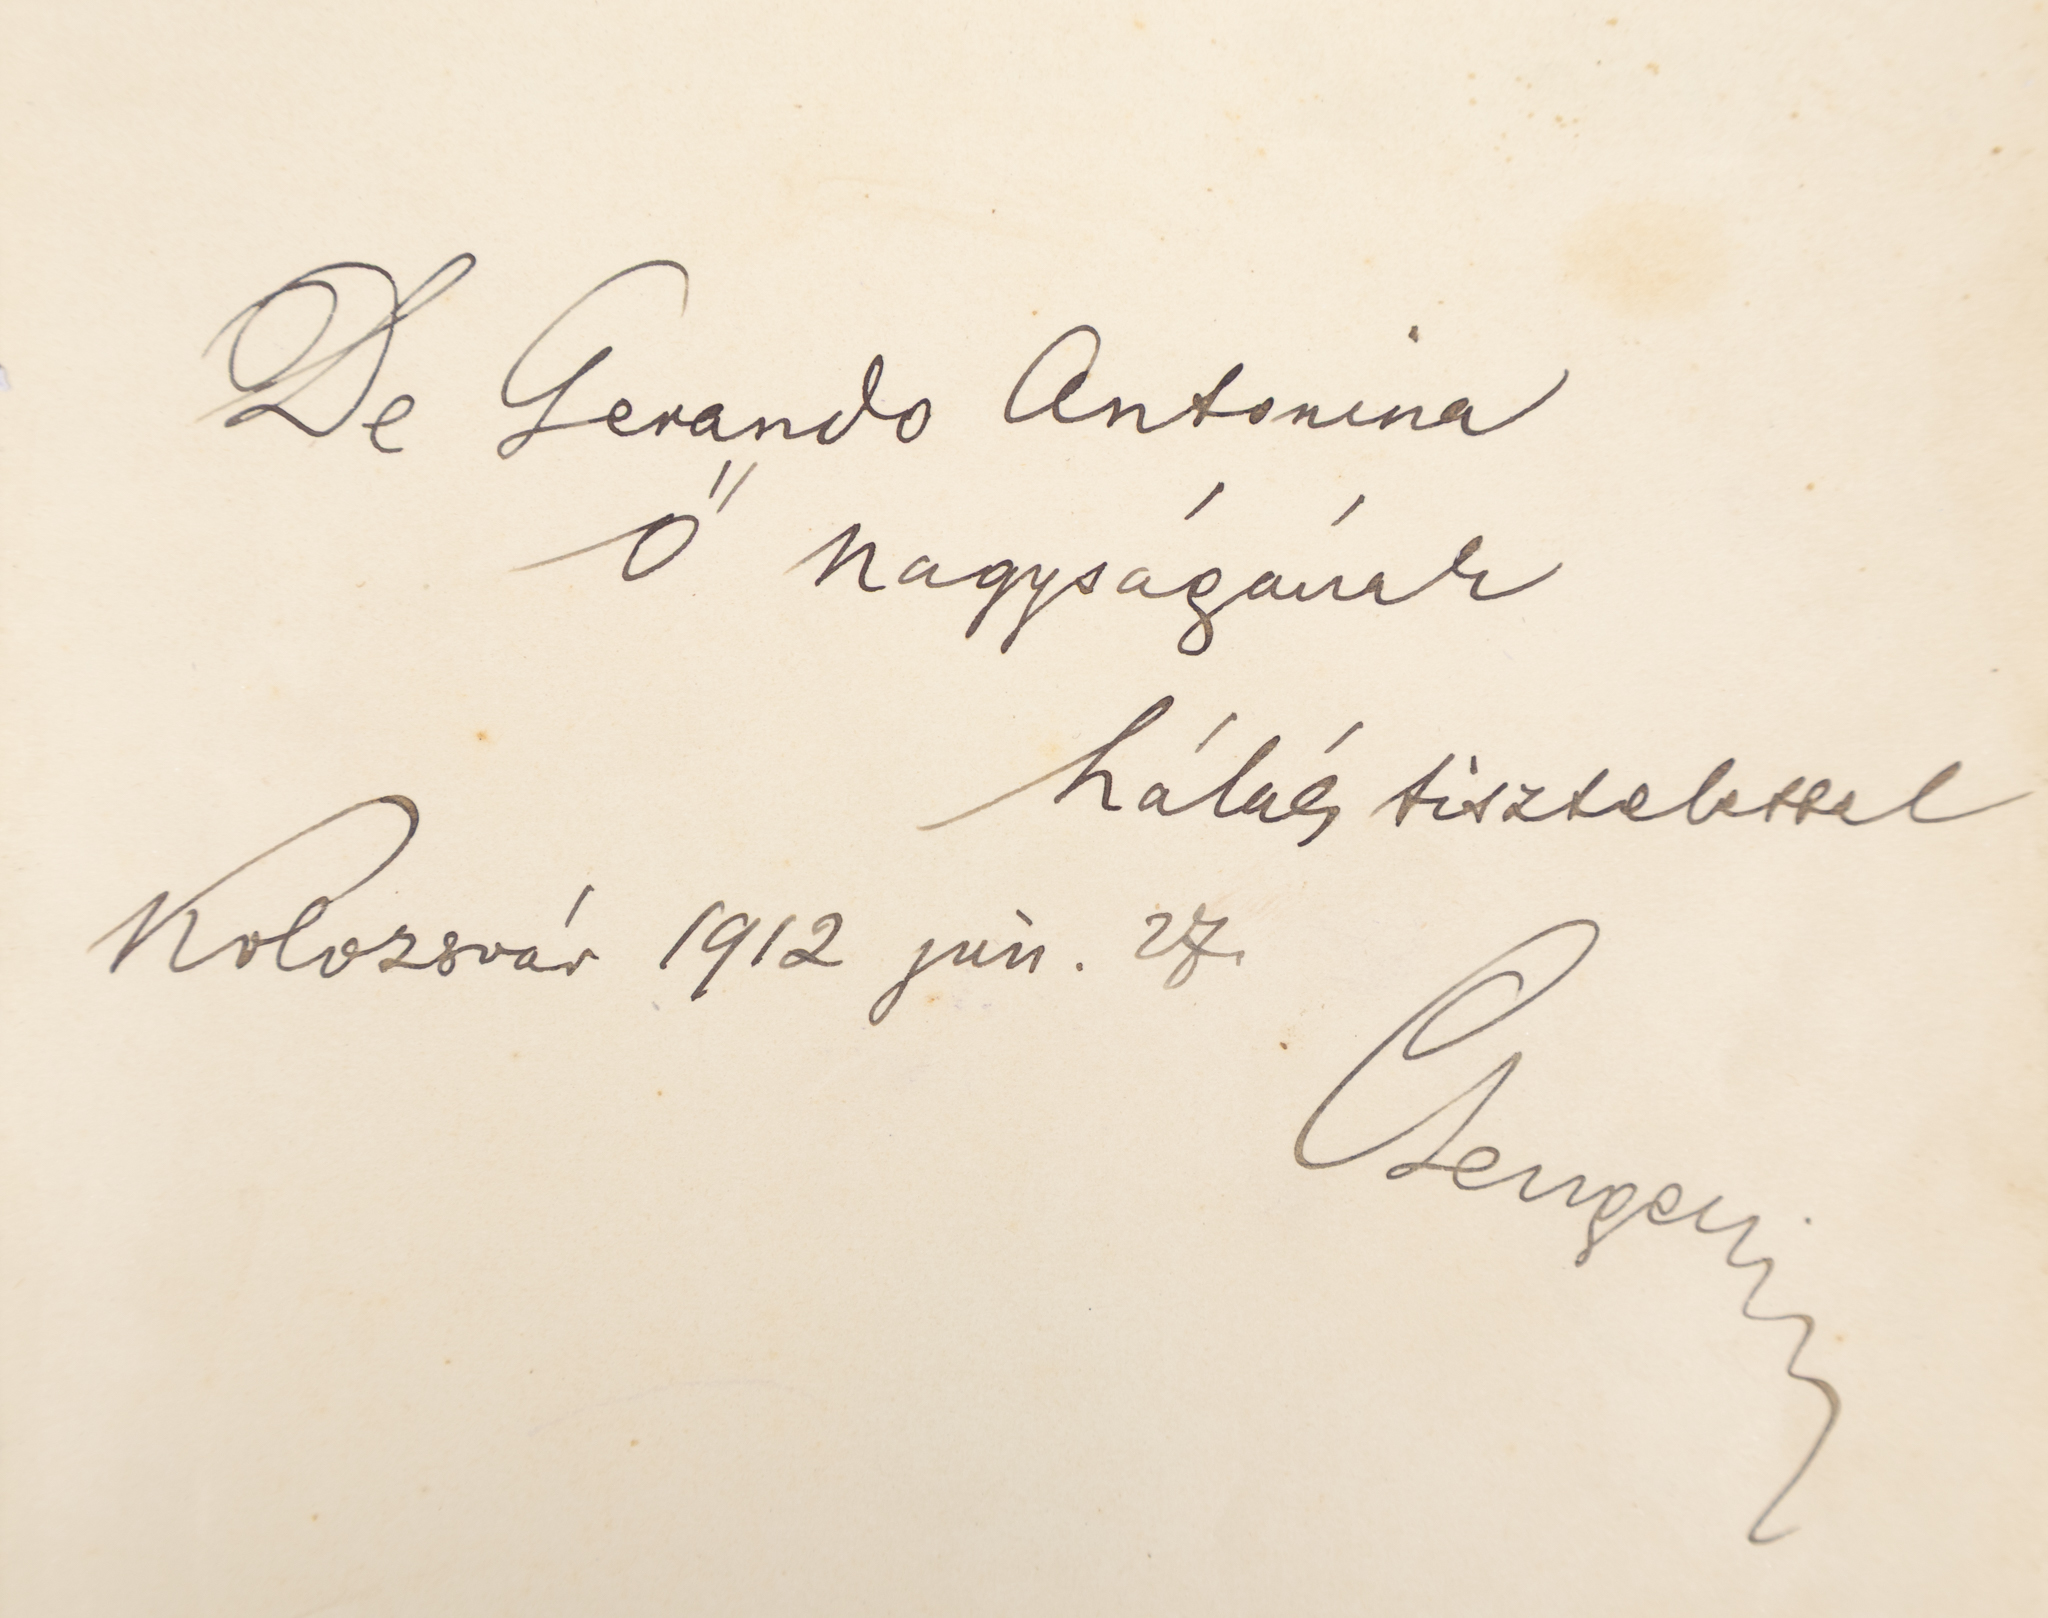 De Gerando Antonina
Ő Nagyságának
hálás tisztelettel
Kolozsvár 1912 jun. 27.
Csengeri